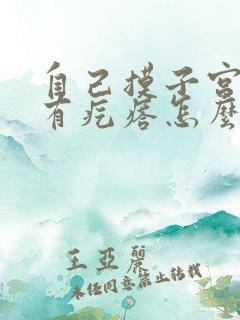 自己摸子宫
有疙瘩怎么
王亚丽
未经同意禁止转载